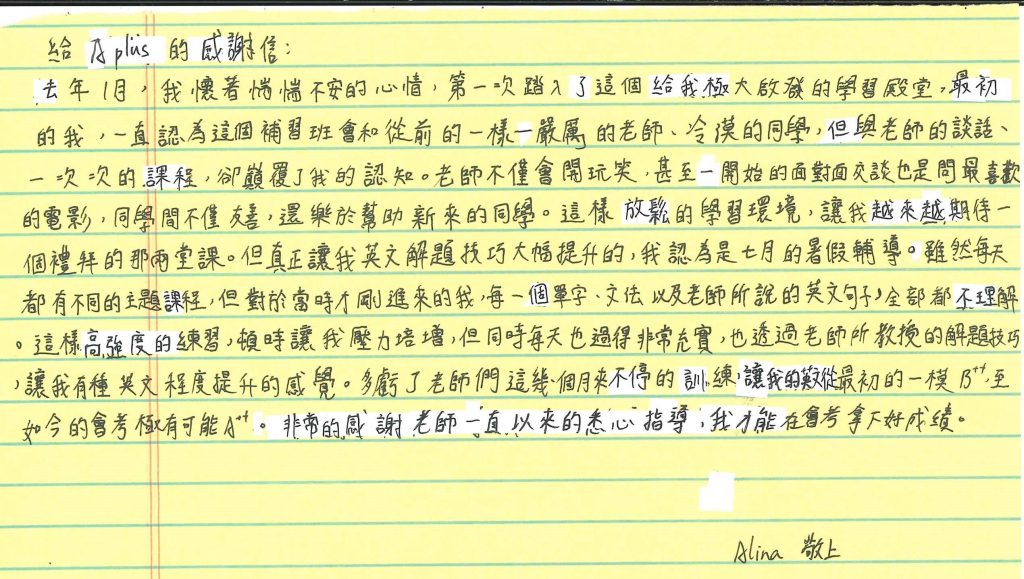 給 A plus 的感謝信:
去年1月,我懷著惴惴不安的心情,第一次踏入了這個給我極大啟發的學習殿堂,最初
的我,一直認為這個補習班會和從前的一樣—嚴厲的老師、冷漠的同學,但與老師的談話、
一次次的課程,卻顛覆了我的認知。老師不僅會開玩笑,甚至一開始的面對面交談也是問最喜歡
的電影,同學間不僅友善,還樂於幫助新來的同學。這樣放鬆的學習環境,讓我越來越期待一
個禮拜的那兩堂課。但真正讓我英文解題技巧大幅提升的,我認為是七月的暑假輔導。雖然每天
都有不同的主題課程,但對於當時才剛進來的我,每一個單字、文法以及老師所說的英文句子,全部都不理解
。這樣高強度的練習,頓時讓我壓力培增,但同時每天也過得非常充實,也透過老師所教授的解題技巧
,讓我有種英文程度提升的感覺。多虧了老師們這幾個月來不停的訓練,讓我的英文從最初的一模B++,至
如今的會考極有可能A++。非常的感謝老師一直以來的悉心指導,我才能在會考拿下好成績。
Alina 敬上